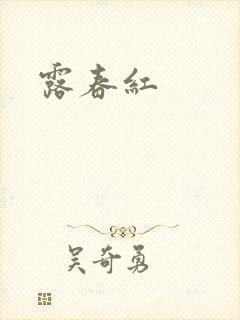 露春紅
吴奇勇